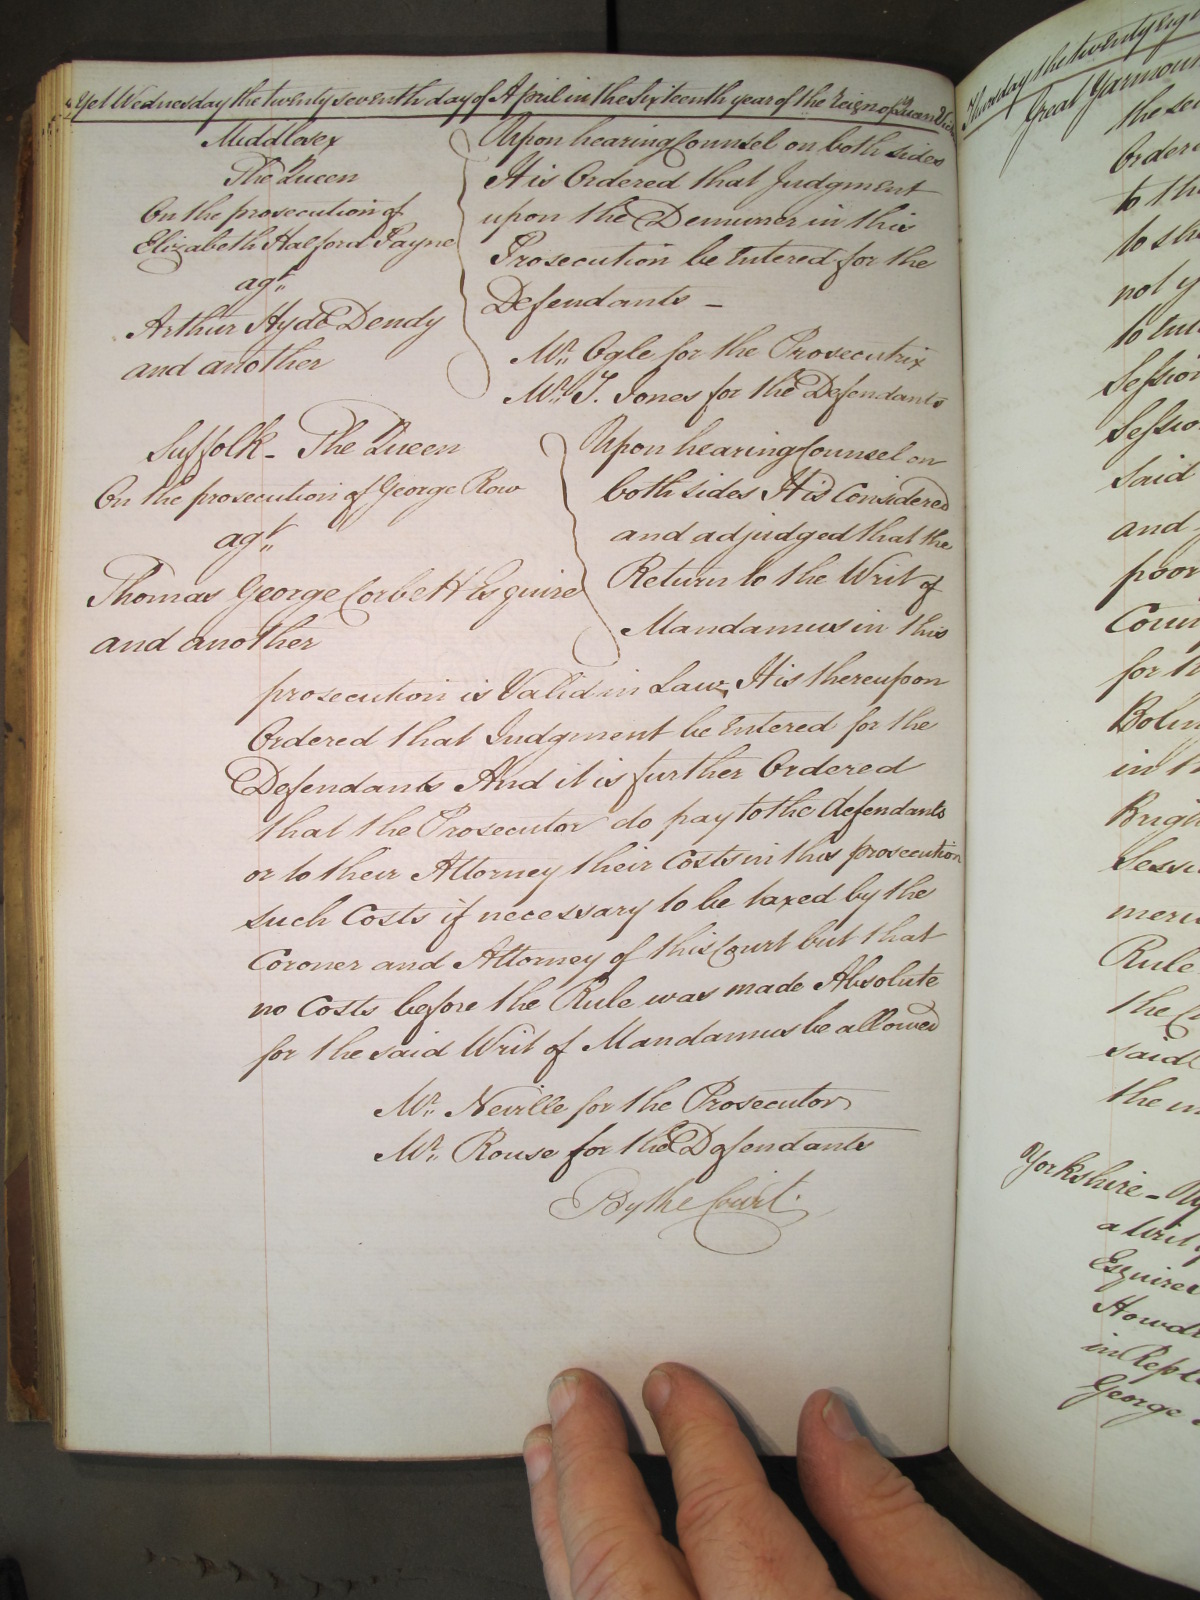 Yet Wednesday the twenty seventh day of April in the Sixteenth year of the Reign of Queen Vict
Middlesex
The Queen
On the prosecution of
Elizabeth Halford Payne
agt.
Arthur Hyde Dendy
and another
Upon hearing Counsel on both sides
It is Ordered that Judgment
upon the Demurrer in this
Prosecution be Entered for the
Defendants –
Mr. Ogle for the Prosecutrix
Mr. T. Jones for the Defendants
Suffolk – The Queen
On the prosecution of George Row
agt.
Thomas George Corbett Esquire
and another
Upon hearing Counsel on
both sides It is Considered
and adjudged that the
Return to the Writ of
Mandamus in this
prosecution is Valid in Law, It is thereupon
Ordered that Judgment be Entered for the
Defendants And it is further Ordered
that the Prosecutor do pay to the defendants
or to their Attorney their Costs in this prosecution
such Costs if necessary to be taxed by the
Coroner and Attorney of this Court but that
no Costs before the Rule was made Absolute
for the said Writ of Mandamus be allowed
Mr. Neville for the Prosecutor
Mr. Rouse for the Defendants
By the Court.
Thursday the twenty eig
Great Yarmou
the
Ordere
to th
to sh
not
to
Session
Sessio
said
and
poor
Coun
for th
in
Brigh
Sessi
Rule
the
said
the
Yorkshire –
a Writ
Esquires
Howd
in Repl
George